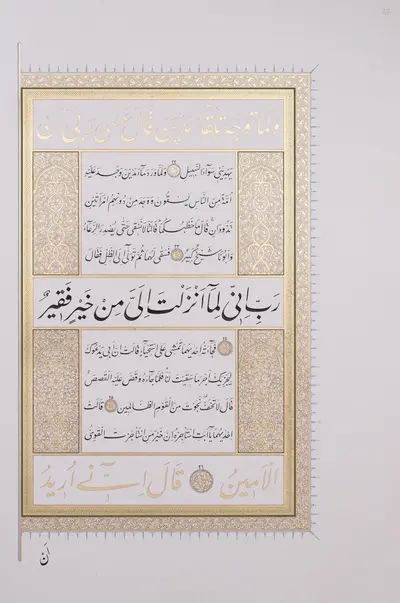 وَلَمَّا تَوَجَّهَ تِلْقَاءَ مَدْيَنَ قَالَ عَسٰى رَبّٖي اَنْ
يَهْدِيَنٖي سَوَاءَ السَّبٖيلِ وَلَمَّا وَرَدَ مَاءَ مَدْيَنَ وَجَدَ عَلَيْهِ
اُمَّةً مِنَ النَّاسِ يَسْقُونَ وَوَجَدَ مِنْ دُونِهِمُ امْرَاَتَيْنِ
تَذُودَانِ قَالَ مَا خَطْبُكُمَا قَالَتَا لَا نَسْقٖي حَتّٰى يُصْدِرَ الرِّعَاءُ
وَاَبُونَا شَيْخٌ كَبٖيرٌ فَسَقٰى لَهُمَا ثُمَّ تَوَلّٰى اِلَى الظِّلِّ فَقَالَ
رَبِّ اِنّٖي لِمَا اَنْزَلْتَ اِلَيَّ مِنْ خَيْرٍ فَقٖيرٌ
فَجَاءَتْهُ اِحْدٰيهُمَا تَمْشٖي عَلَى اسْتِحْيَاءٍ قَالَتْ اِنَّ اَبٖي يَدْعُوكَ
لِيَجْزِيَكَ اَجْرَ مَا سَقَيْتَ لَنَا فَلَمَّا جَاءَهُ وَقَصَّ عَلَيْهِ الْقَصَصَ
قَالَ لَا تَخَفْ نَجَوْتَ مِنَ الْقَوْمِ الظَّالِمٖينَ قَالَتْ
اِحْدٰيهُمَا يَا اَبَتِ اسْتَاْجِرْهُ اِنَّ خَيْرَ مَنِ اسْتَاْجَرْتَ الْقَوِيُّ
الْاَمٖينُ قَالَ اِنّٖي اُرٖيدُ
اَنْ